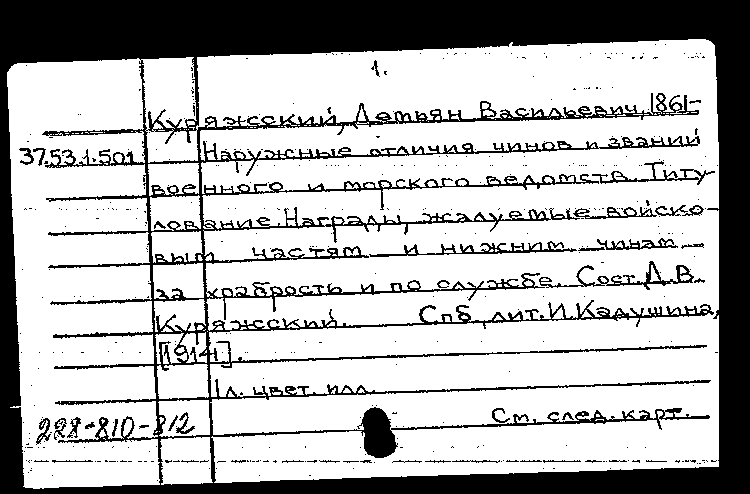 1.
Куряжсский, Демьян Васильевич, 1861-
37.53.1.501 Наружные отличия чинов и званий
военного и морского ведомств. Титу-
лование. Награды, жалуемые войско-
вым частям и нижним чинам
за храбрость и по службе. Сост. Д.В.
Куряжсский. Спб, лит. И. Кадушина,
[1914].
1 л. цвет. илл.
228-810-812 См. след. карт.